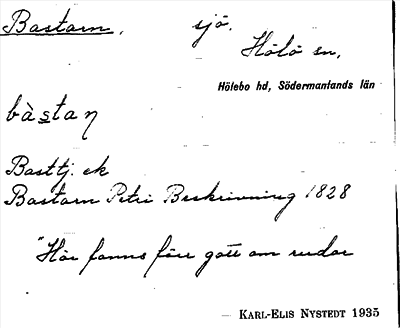 Bastarn, sjö.
Hölö sn,
Hölebo hd, Södermanlands län
bàstaɳ
Basttj. ek
Bastarn Petri Beskrivning 1828
"Här fanns förr gott om rudor
KARL-ELIS NYSTEDT 1935